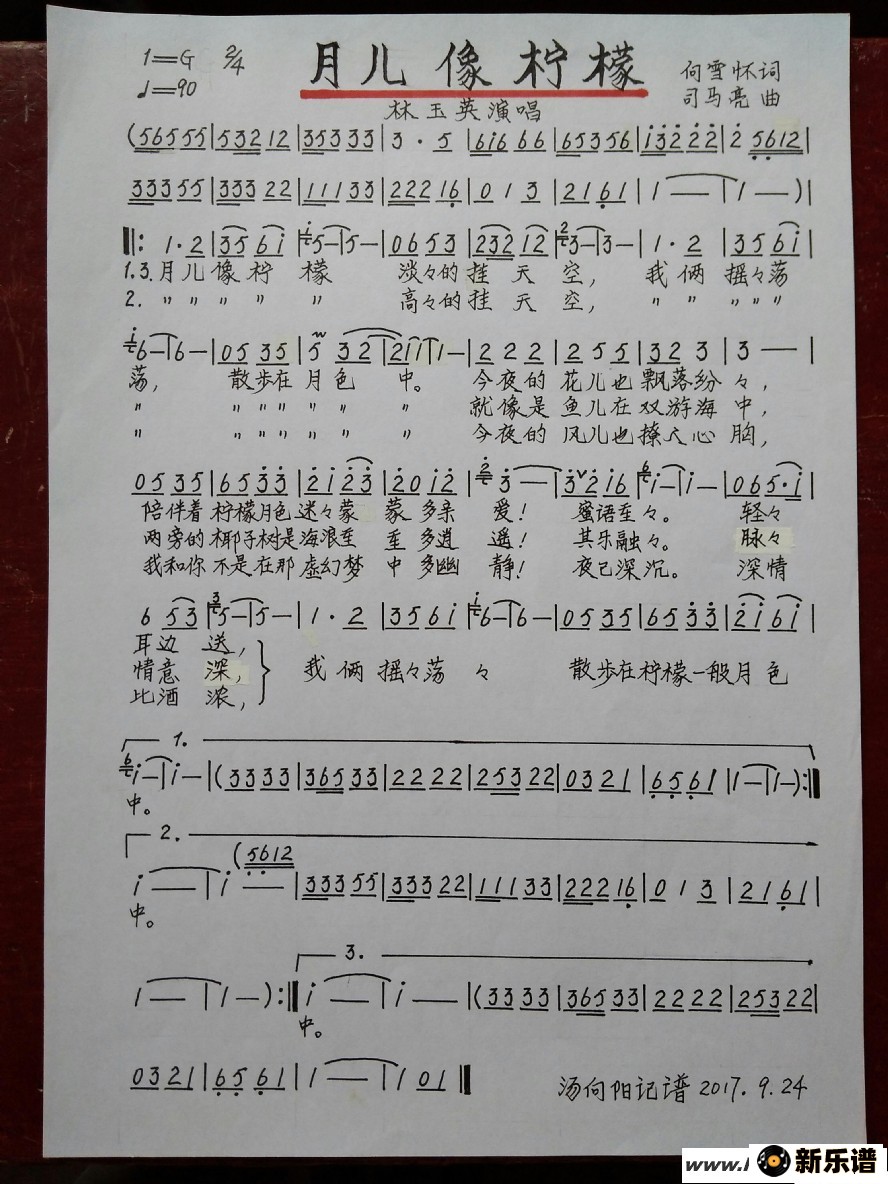 1=G 2/4 月儿像柠檬 何雪怀词
♩=90 林玉英演唱 司马亮曲
(56555|53212|35333|3·5|6i666|65356|i3222|2 5612|
33355|33322|11133|22216|013|2161|1—|1—)|
‖:1·2|356i|5—|5—|0653|23212|3—|3—|1·2|356i|
1.3.月儿像柠檬 淡々的挂天空, 我俩摇々荡
2. 〃〃〃〃 〃 高々的挂天空, 〃 〃 〃〃〃
6—|6—|0535|5 32|2111—|222|255|323|3—|
荡, 散步在月色 中。 今夜的花儿也飘落纷々,
〃 〃〃〃〃〃 〃 就像是鱼儿在双游海中,
〃 〃〃〃〃〃 〃 今夜的风儿也撩人心胸,
0535|6533|2i23|20i2|3—|32i6|i—|i—|065·i|
陪伴着柠檬月色迷々蒙 蒙多亲 爱! 蜜语至々。 轻々
两旁的椰子树是海浪至 至多逍 遥! 其乐融々。 脉々
我和你不是在那虚幻梦 中多幽 静! 夜已深沉。 深情
6 53|5—|5—|1·2|356i|6—|6—|0535|6533|2i6i|
耳边送,
情意深, 我俩摇々荡 々 散步在柠檬一般月色
比酒浓,
1.
i—|i—|(3333|36533|2222|25322|0321|6561|1—|1—):‖
中。
2.
(5612
i—|i |33355|33322|11133|22216|013|2161|
中。
3.
1—|1—):‖i—|i—|(3333|36533|2222|25322|
中。
0321|6561|1—|101‖ 汤向阳记谱 2017.9.24
www. 新乐谱